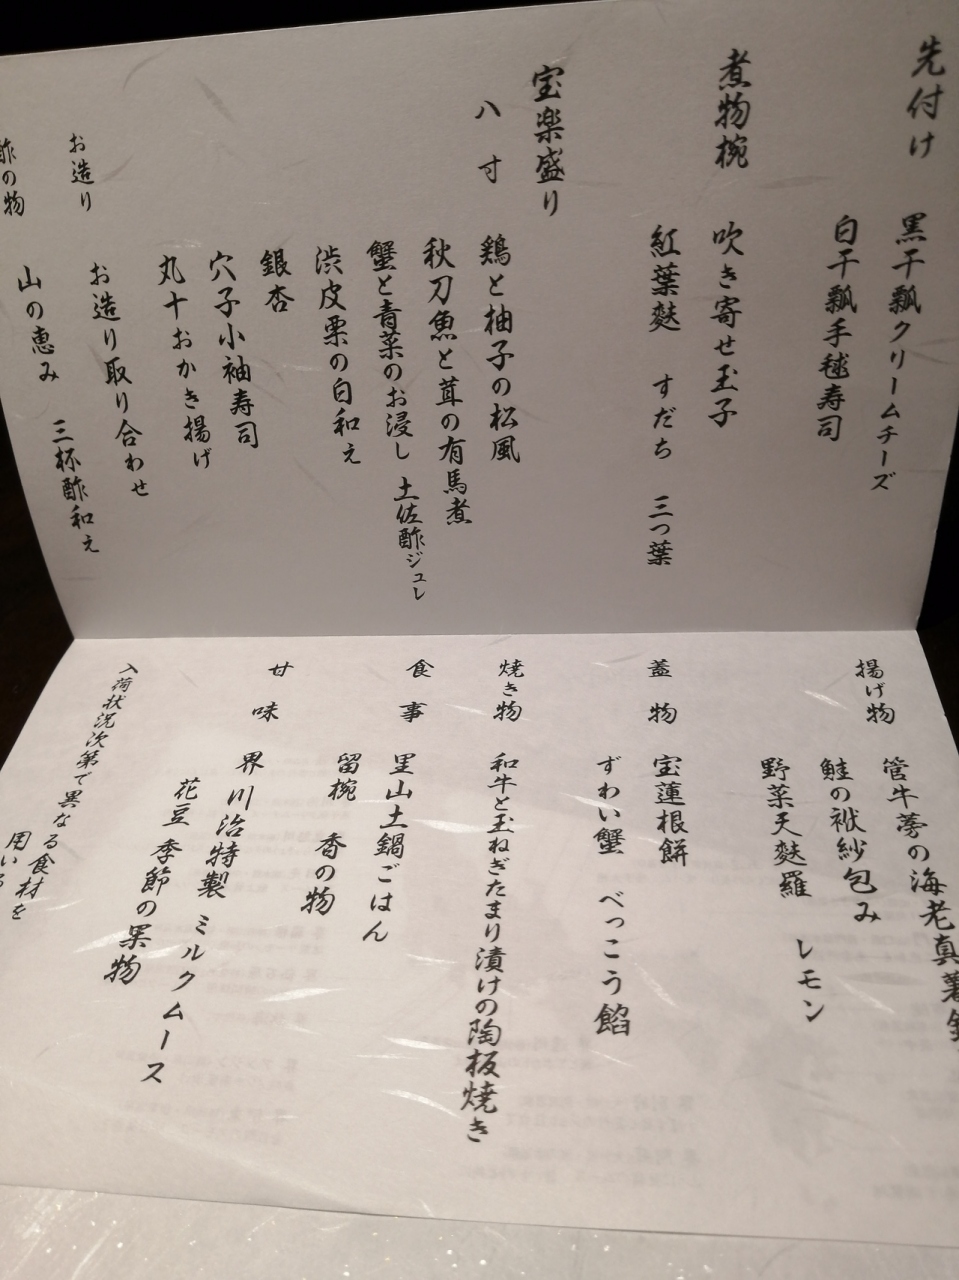 先付け
黒干瓢クリームチーズ
白干瓢手毬寿司
煮物椀
吹き寄せ玉子
紅葉麸 すだち 三つ葉
宝楽盛り
八寸
鶏と柚子の松風
秋刀魚と茸の有馬煮
蟹と青菜のお浸し 土佐酢ジュレ
渋皮栗の白和え
銀杏
穴子小袖寿司
丸十おかき揚げ
お造り
お造り取り合わせ
酢の物
山の恵み 三杯酢和え
揚げ物
管牛蒡の海老真薯
鮭の袱紗包み
野菜天麩羅 レモン
蓋物
宝蓮根餅
ずわい蟹 べっこう餡
焼き物
和牛と玉ねぎたまり漬けの陶板焼き
食事
里山土鍋ごはん
留椀 香の物
甘味
界川治特製 ミルクムース
花豆 季節の果物
入荷状況次第で異なる食材を
用いる